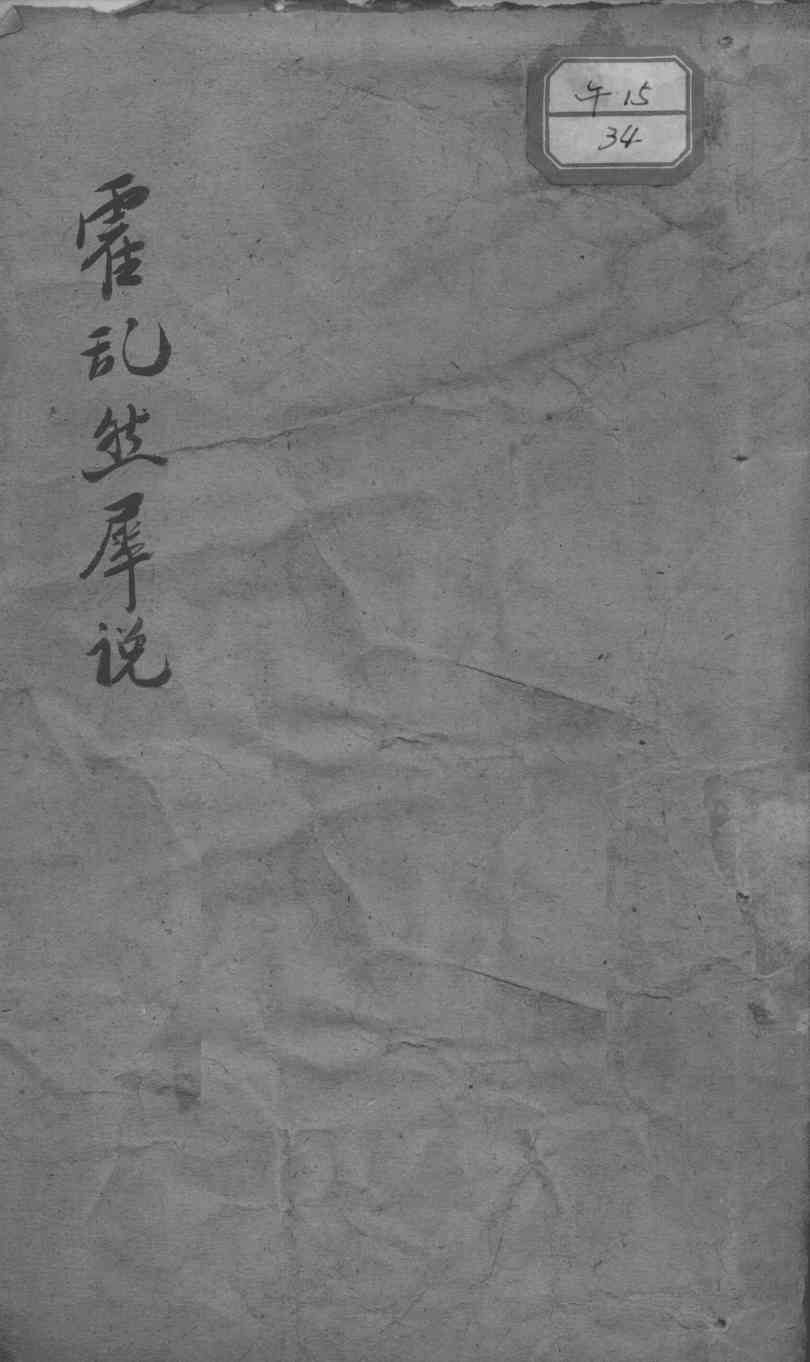 午15
34
霍乱然犀说